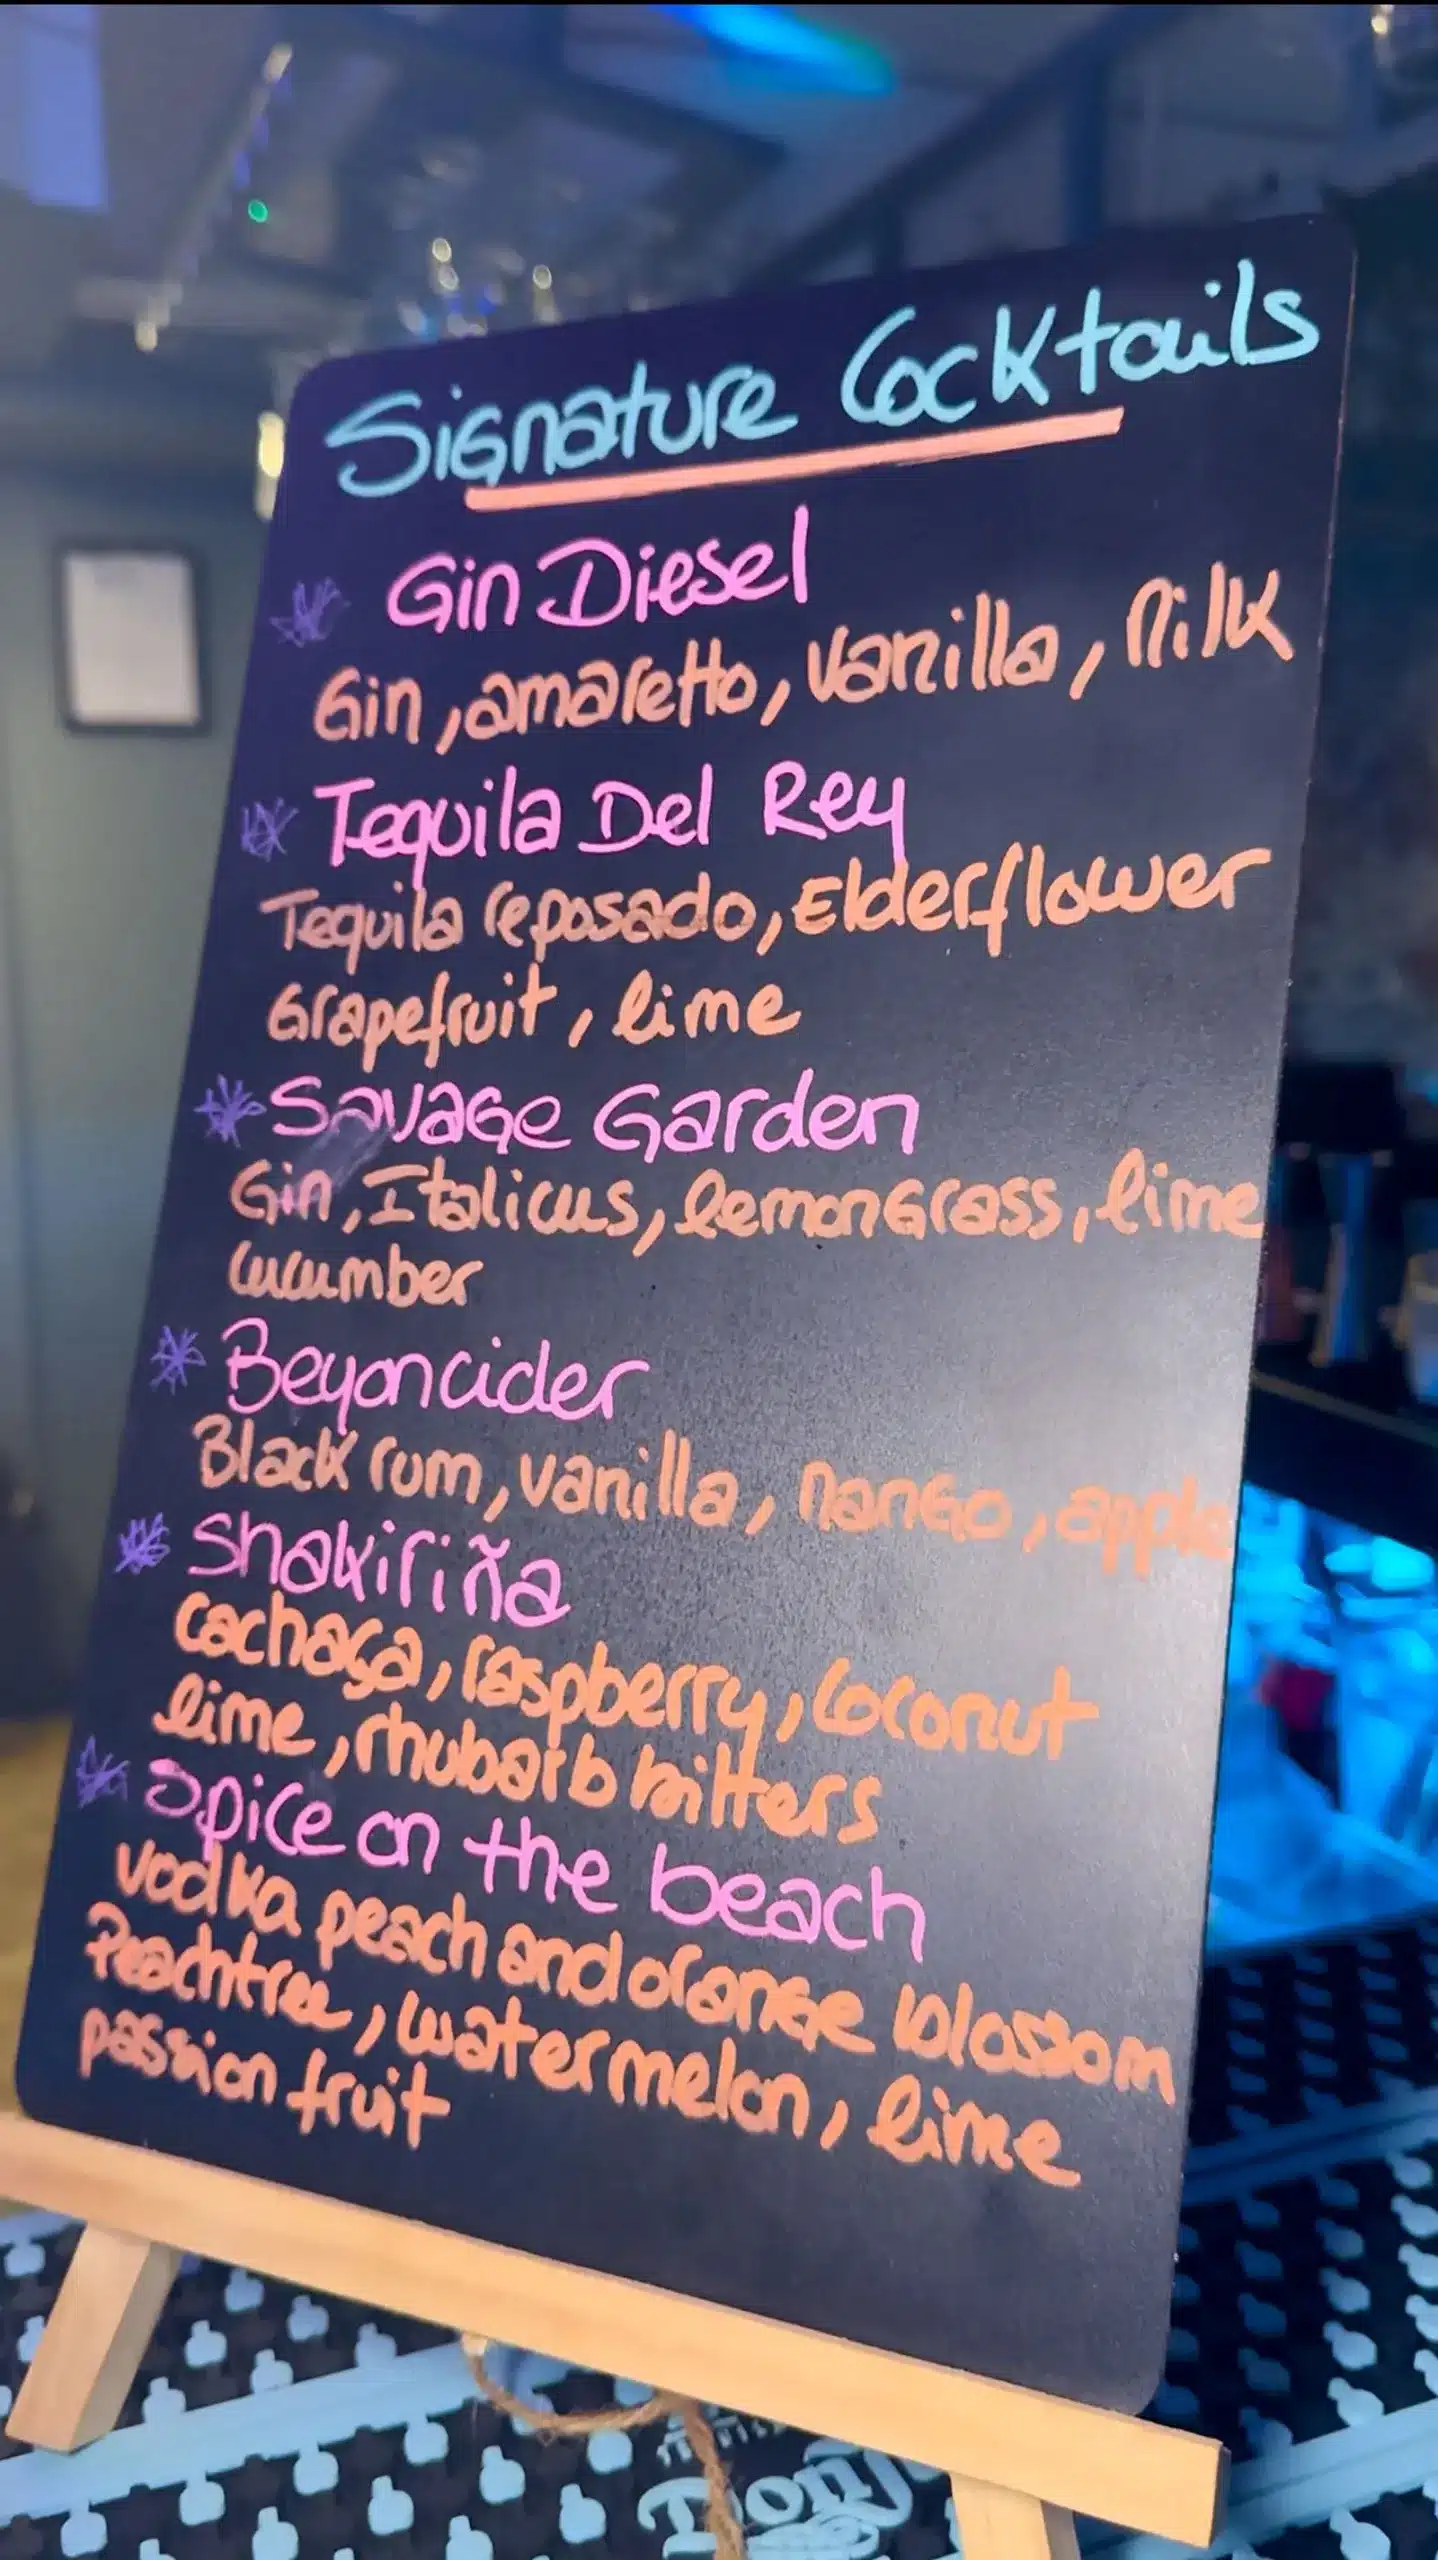 Signature Cocktails
Gin Diesel
Gin, amaretto, vanilla, Milk
Tequila Del Rey
Tequila reposado, Elderflower
Grapefruit, lime
Savage Garden
Gin, Italicus, lemongrass, lime
cucumber
Beyoncider
Black rum, vanilla, Mango, apple
Shakiriña
Cachaça, raspberry, Coconut
lime, rhubarb bitters
Spice on the beach
Vodka peach and orange blossom
Peachtree, watermelon, lime
passion fruit